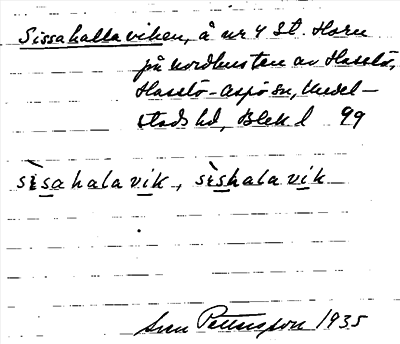 Sissahallaviken, å nr 4 St. Horn
på nordkusten av Hasslö,
Hasslö-Aspö sn, Medel-
stads hd, Blek l 99
sìsahalavik, sìshalavik
Sven Pettersson 1935